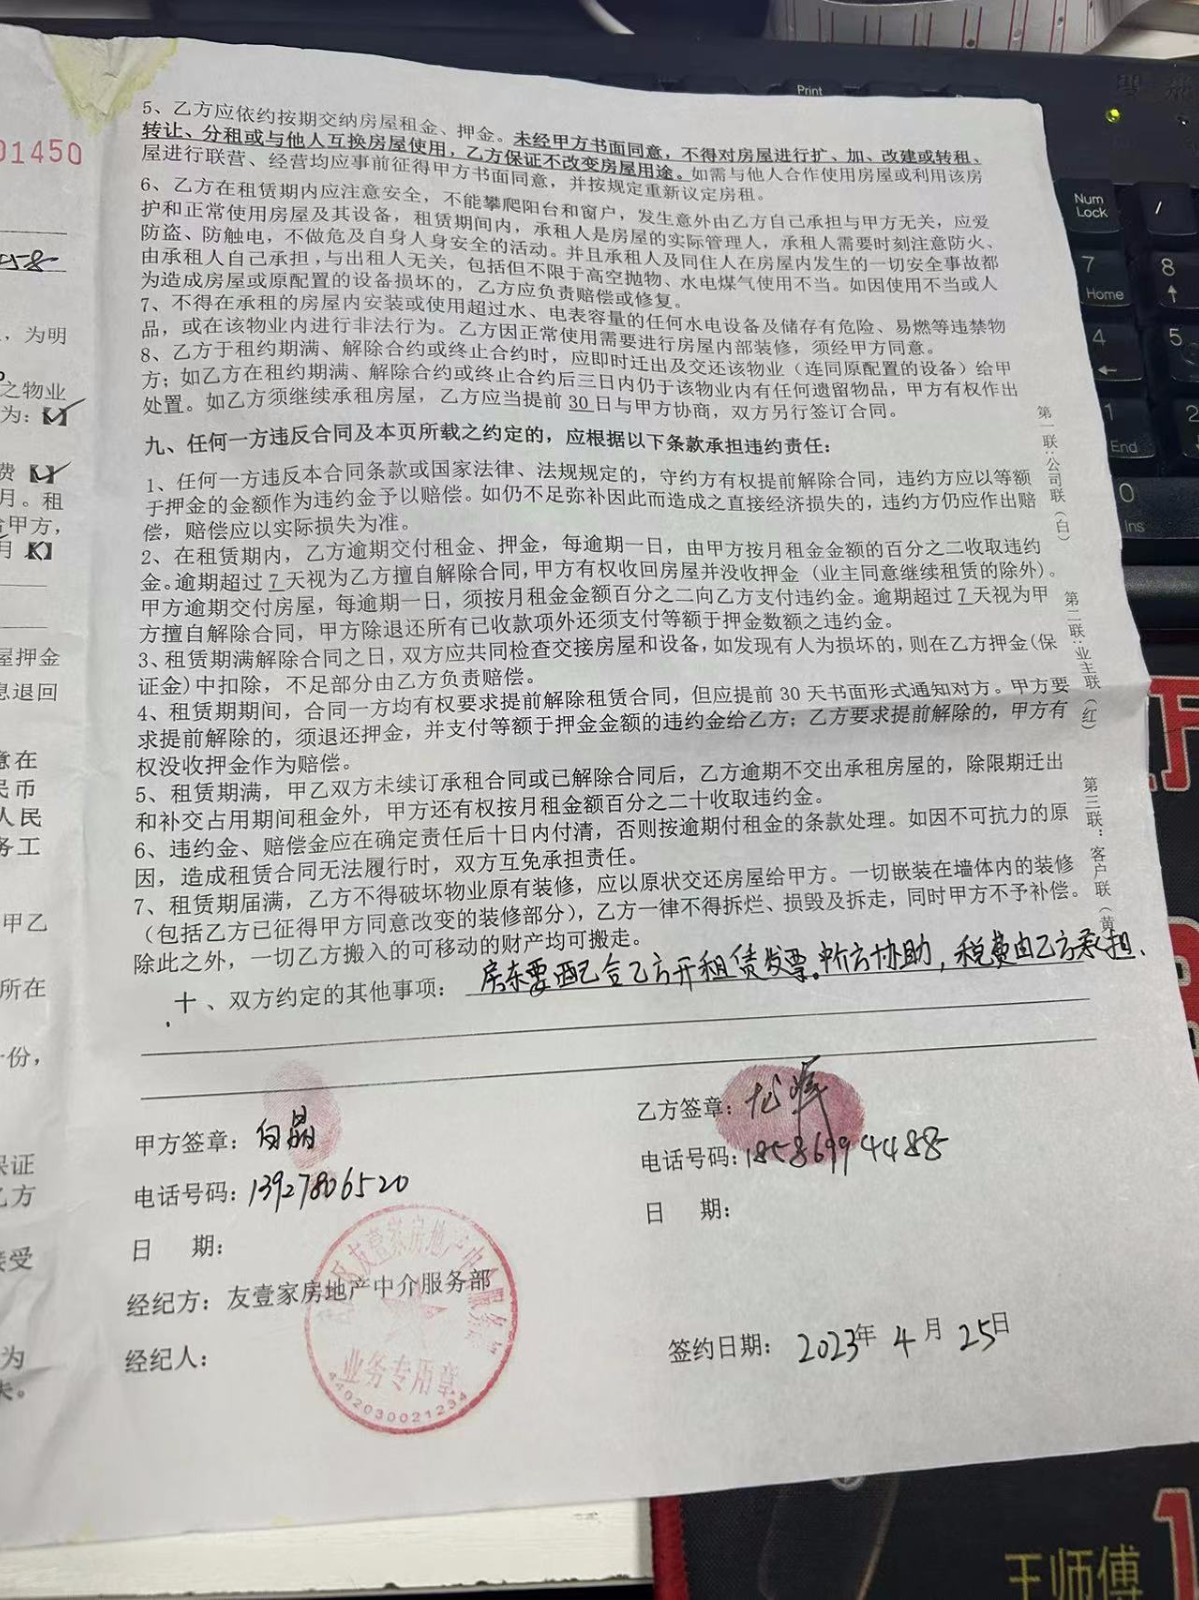 01450
5、乙方应依约按期交纳房屋租金、押金。未经甲方书面同意，不得对房屋进行扩、加、改建或转租、
转让、分租或与他人互换房屋使用，乙方保证不改变房屋用途。如需与他人合作使用房屋或利用该房
屋进行联营、经营均应事前征得甲方书面同意，并按规定重新议定房租。
6、乙方在租赁期内应注意安全，不能攀爬阳台和窗户，发生意外由乙方自己承担与甲方无关，应爱
护和正常使用房屋及其设备，租赁期间内，承租人是房屋的实际管理人，承租人需要时刻注意防火、
防盗、防触电，不做危及自身人身安全的活动。并且承租人及同住人在房屋内发生的一切安全事故都
由承租人自己承担，与出租人无关，包括但不限于高空抛物、水电煤气使用不当。如因使用不当或人
为造成房屋或原配置的设备损坏的，乙方应负责赔偿或修复。
7、不得在承租的房屋内安装或使用超过水、电表容量的任何水电设备及储存有危险、易燃等违禁物
品，或在该物业内进行非法行为。乙方因正常使用需要进行房屋内部装修，须经甲方同意。
8、乙方于租约期满、解除合约或终止合约时，应即时迁出及交还该物业（连同原配置的设备）给甲
方；如乙方在租约期满、解除合约或终止合约后三日内仍于该物业内有任何遗留物品，甲方有权作出
处置。如乙方须继续承租房屋，乙方应当提前30日与甲方协商，双方另行签订合同。
九、任何一方违反合同及本页所载之约定的，应根据以下条款承担违约责任：
1、任何一方违反本合同条款或国家法律、法规规定的，守约方有权提前解除合同，违约方应以等额
于押金的金额作为违约金予以赔偿。如仍不足弥补因此而造成之直接经济损失的，违约方仍应作出赔
偿，赔偿应以实际损失为准。
2、在租赁期内，乙方逾期交付租金、押金，每逾期一日，由甲方按月租金金额的百分之二收取违约
金。逾期超过7天视为乙方擅自解除合同，甲方有权收回房屋并没收押金（业主同意继续租赁的除外）。
甲方逾期交付房屋，每逾期一日，须按月租金金额百分之二向乙方支付违约金。逾期超过7天视为甲
方擅自解除合同，甲方除退还所有已收款项外还须支付等额于押金数额之违约金。
3、租赁期满解除合同之日，双方应共同检查交接房屋和设备，如发现有人为损坏的，则在乙方押金(保
证金)中扣除，不足部分由乙方负责赔偿。
4、租赁期期间，合同一方均有权要求提前解除租赁合同，但应提前30天书面形式通知对方。甲方要
求提前解除的，须退还押金，并支付等额于押金金额的违约金给乙方；乙方要求提前解除的，甲方有
权没收押金作为赔偿。
5、租赁期满，甲乙双方未续订承租合同或已解除合同后，乙方逾期不交出承租房屋的，除限期迁出
和补交占用期间租金外，甲方还有权按月租金额百分之二十收取违约金。
6、违约金、赔偿金应在确定责任后十日内付清，否则按逾期付租金的条款处理。如因不可抗力的原
因，造成租赁合同无法履行时，双方互免承担责任。
7、租赁期届满，乙方不得破坏物业原有装修，应以原状交还房屋给甲方。一切嵌装在墙体内的装修
（包括乙方已征得甲方同意改变的装修部分），乙方一律不得拆烂、损毁及拆走，同时甲方不予补偿。
除此之外，一切乙方搬入的可移动的财产均可搬走。
十、双方约定的其他事项：房东要配合乙方开租赁发票。中介方协助，税费由乙方承担、
甲方签章：白晶
电话号码：13927806520
日 期：
经纪方：友壹家房地产中介服务部
经纪人：
业务专用章
4402030021234
乙方签章：
电话号码：18586994488
日 期：
签约日期：2023年4月25日
第一联：公司联（白）
第二联：业主联（红）
第三联：客户联（黄
，为明
之物业
为：【
费【
月。租
合甲方，
月【
屋押金
息退回
意在
民币
人民
务工
甲乙
所在
份，
保证
乙方
接受
为
失。
Print
Num Lock
/
7 Home
8
4
5
1 End
2
0 Ins
王师傅
1